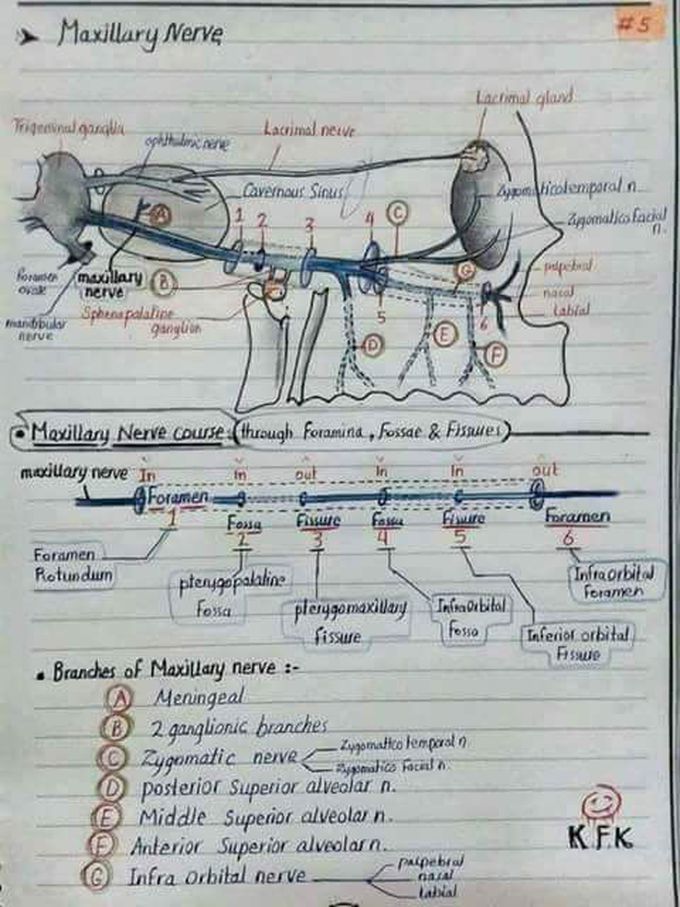 #5
➤ Maxillary Nerve
Lacrimal gland
Trigeminal ganglia
ophthalmic nerve
Lacrimal nerve
Cavernous Sinus
Zygomaticotemporal n.
Zygomatico facial n.
A
1
2
3
4
C
B
G
palpebral
nasal
labial
foramen ovale
maxillary nerve
Sphenopalatine ganglion
mandibular nerve
5
6
D
E
F
• Maxillary Nerve course: (through Foramina, Fossae & Fissures)
maxillary nerve
In In out In In out
Foramen Fossa Fissure Fossa Fissure Foramen
1 2 3 4 5 6
Foramen Rotundum
pterygopalatine Fossa
pterygomaxillary fissure
InfraOrbital Fossa
Inferior orbital Fissure
Infra Orbital Foramen
▪ Branches of Maxillary nerve :-
A Meningeal
B 2 ganglionic branches
C Zygomatic nerve
Zygomatico temporal n
Zygomatico Facial n.
D posterior Superior alveolar n.
E Middle Superior alveolar n.
F Anterior Superior alveolar n.
G Infra Orbital nerve
palpebral
nasal
labial
KFK